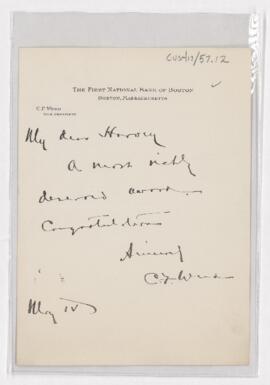 CUSH/17/57.12
THE FIRST NATIONAL BANK OF BOSTON
BOSTON, MASSACHUSETTS
C.F. WEED
VICE PRESIDENT
My dear Harvey
A most richly
deserved award.
Congratulations
Sincerely
C. F. Weed
May 10